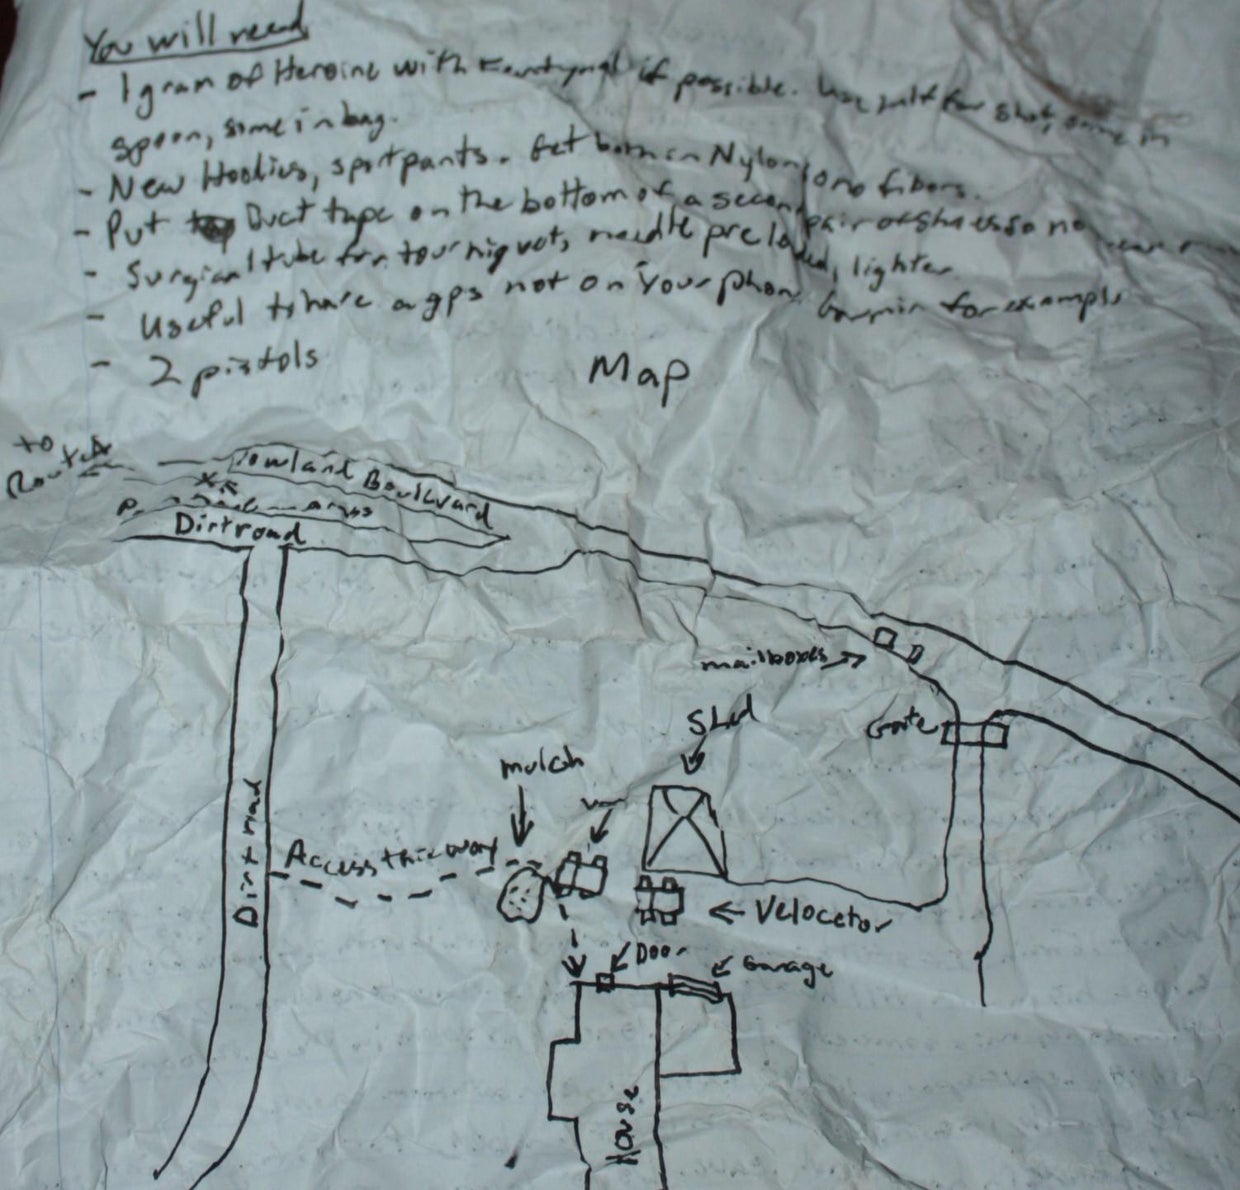 You will need
- 1 gram of Heroine with if possible. Use half for shot, some in
spoon, some in bag.
- New Hoodies, sportpants. Get both in Nylon, no fibers.
- Put Duct tape on the bottom of a second pair of shoes so no
- Surgical tube for tourniquet, needle pre loaded, lighter
- Useful to have a gps not on your phone Garmin for example
- 2 pistols
Map
to
Route
Towland Boulevard
Dirtroad
mailboxes
Shed
Gate
mulch
Access this way
Dirt road
Velocetor
Door
Garage
House